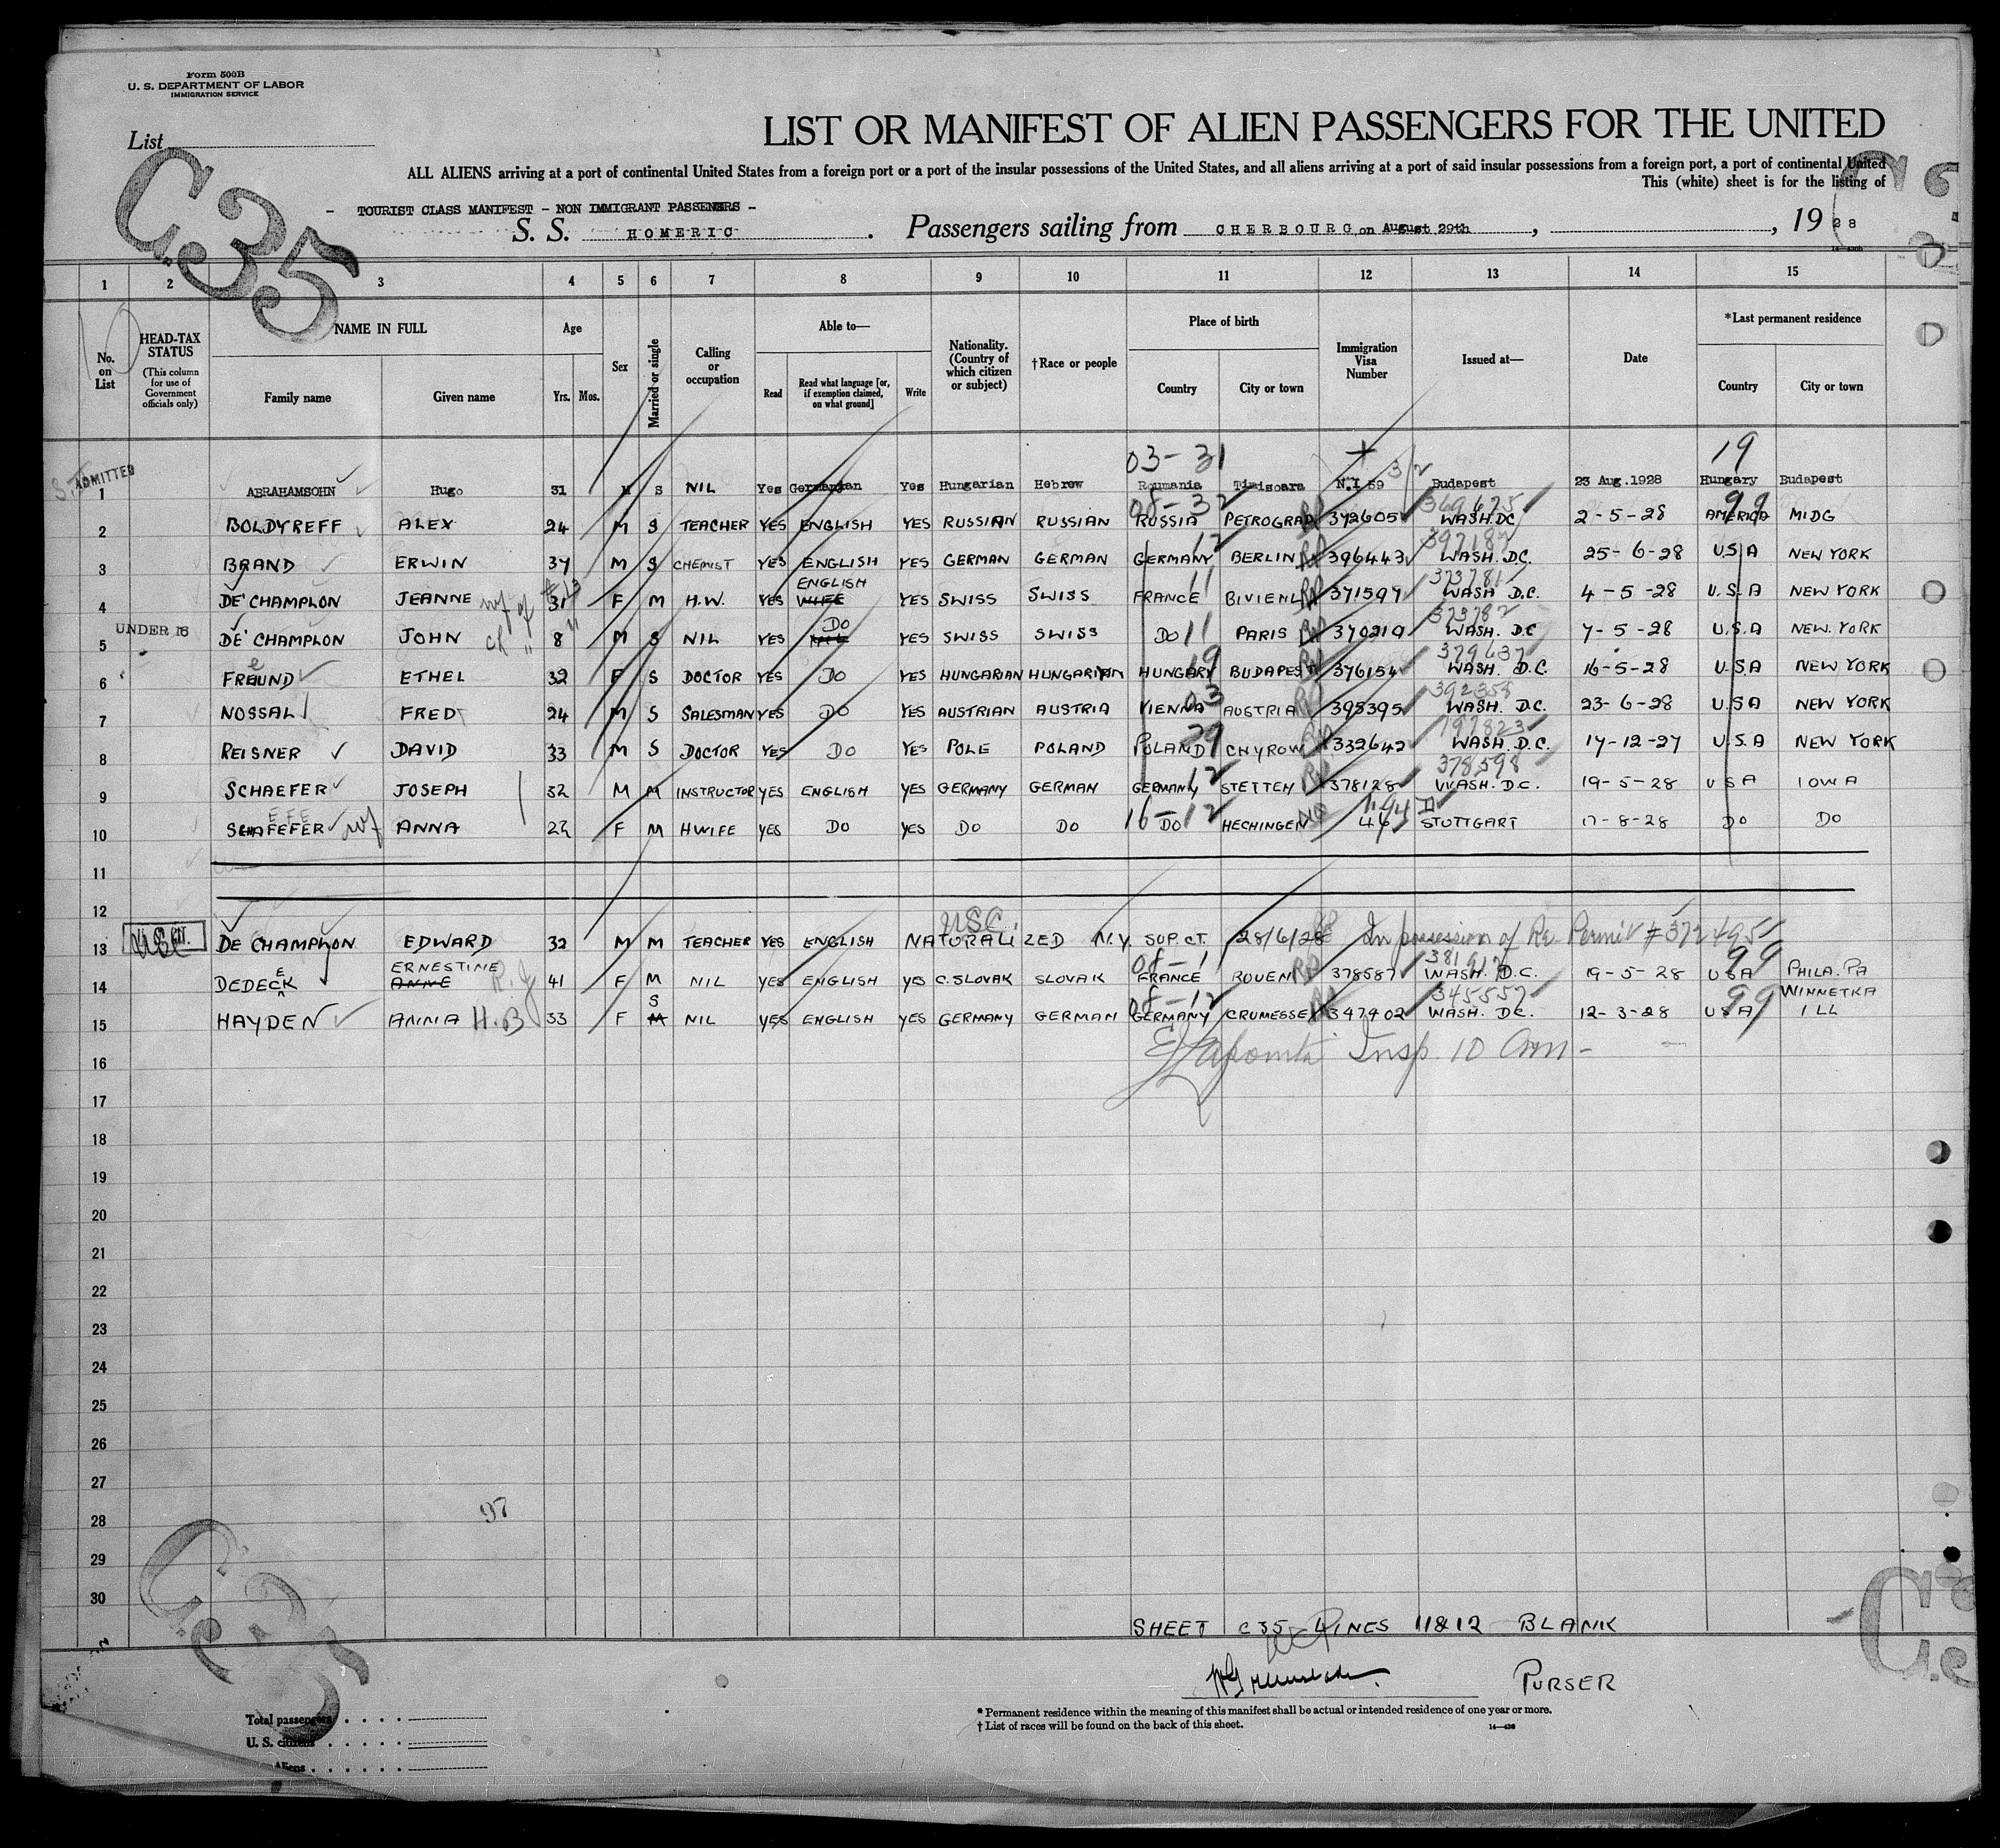 Form 500B
U. S. DEPARTMENT OF LABOR
IMMIGRATION SERVICE
List
C.35
LIST OR MANIFEST OF ALIEN PASSENGERS FOR THE UNITED
ALL ALIENS arriving at a port of continental United States from a foreign port or a port of the insular possessions of the United States, and all aliens arriving at a port of said insular possessions from a foreign port, a port of continental United
This (white) sheet is for the listing of
- TOURIST CLASS MANIFEST - NON IMMIGRANT PASSENGERS -
S. S. HOMERIC. Passengers sailing from CHERBOURG on August 29th, , 19 28
1 2 3 4 5 6 7 8 9 10 11 12 13 14 15
No. on List
HEAD-TAX STATUS (This column for use of Government officials only)
NAME IN FULL Family name Given name
Age Yrs. Mos.
Sex
Married or single
Calling or occupation
Able to— Read Read what language [or, if exemption claimed, on what ground] Write
Nationality. (Country of which citizen or subject)
†Race or people
Place of birth Country City or town
Immigration Visa Number
Issued at—
Date
*Last permanent residence Country City or town
03-31 3/2 19
ADMITTED
1 ABRAHAMSOHN Hugo 31 M S NIL Yes Yes Hungarian Hebrew Roumania Timisoara N.I 59 Budapest 23 Aug.1928 Hungary Budapest
08-32 369675 99
2 BOLDYREFF ALEX 24 M S TEACHER YES ENGLISH YES RUSSIAN RUSSIAN RUSSIA PETROGRAD RP 372605 WASH DC 2-5-28 AMERICA MIDG
12 397187
3 BRAND ERWIN 34 M S CHEMIST YES ENGLISH YES GERMAN GERMAN GERMANY BERLIN RP 396443 WASH. D.C. 25-6-28 U.S.A NEW YORK
ENGLISH 11 373781
4 DE CHAMPLON JEANNE wf of #13 31 F M H.W. YES WIFE YES SWISS SWISS FRANCE RP 371597 WASH D.C. 4-5-28 U.S.A NEW YORK
UNDER 16 DO 373782
5 DE CHAMPLON JOHN ch " " 8 M S NIL YES YES SWISS SWISS DO 11 PARIS RP 370219 WASH. D.C 7-5-28 U.S.A NEW YORK
e 19 379637
6 FREUND ETHEL 32 F S DOCTOR YES DO YES HUNGARIAN HUNGARIAN HUNGARY BUDAPEST RP 376154 WASH. D.C. 16-5-28 U.S.A NEW YORK
03 392358
7 NOSSAL FRED 24 M S SALESMAN YES DO YES AUSTRIAN AUSTRIA VIENNA AUSTRIA RP 395395 WASH. D.C. 23-6-28 U.S.A NEW YORK
29 197823
8 REISNER DAVID 33 M S DOCTOR YES DO YES POLE POLAND POLAND CHYROW RP 332642 WASH. D.C. 17-12-27 U.S.A NEW YORK
12 378598
9 SCHAEFER JOSEPH 32 M M INSTRUCTOR YES ENGLISH YES GERMANY GERMAN GERMANY STETTEN RP 378128 WASH. D.C. 19-5-28 U S A IOWA
EFE 16-12
10 SCHAFEFER wf ANNA 22 F M HWIFE YES DO YES DO DO DO HECHINGEN STUTTGART 17-8-28 DO DO
11
12
USC.
13 DE CHAMPLON EDWARD 32 M M TEACHER YES ENGLISH NATURALIZED N.Y. SUP. CT. 28/6/28 In possession of Re. Permit #372495
ERNESTINE 08-1 381917 99
14 DEDECEK ANNE 41 F M NIL YES ENGLISH YES C.SLOVAK SLOVAK FRANCE ROUEN RP 378587 WASH. D.C. 19-5-28 USA PHILA. PA
S 08-12 345557 99 WINNETKA
15 HAYDEN ANNA H.B 33 F M NIL YES ENGLISH YES GERMANY GERMAN GERMANY CRUMESSE RP 347402 WASH. DC. 12-3-28 USA ILL
16 Insp. 10 Am-
17
18
19
20
21
22
23
24
25
26
27
28
29
30
97
C.35
SHEET C35 LINES 11&12 BLANK
PURSER
Total passengers
U. S. citizens
Aliens
* Permanent residence within the meaning of this manifest shall be actual or intended residence of one year or more.
† List of races will be found on the back of this sheet.
14—430